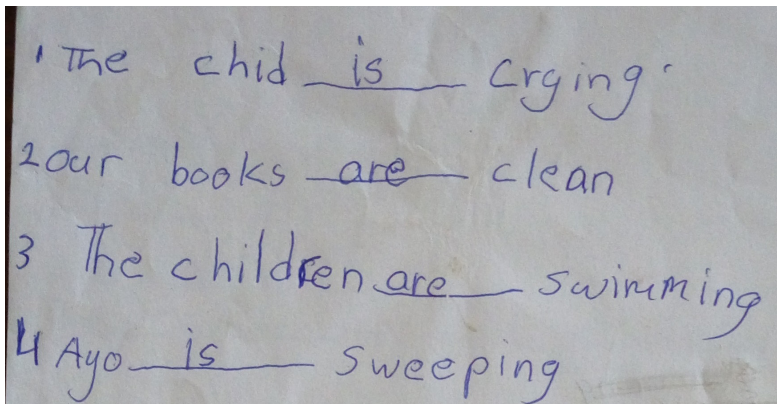 1 The chid is crying.
2 our books are clean
3 The children are swimming
4 Ayo is sweeping